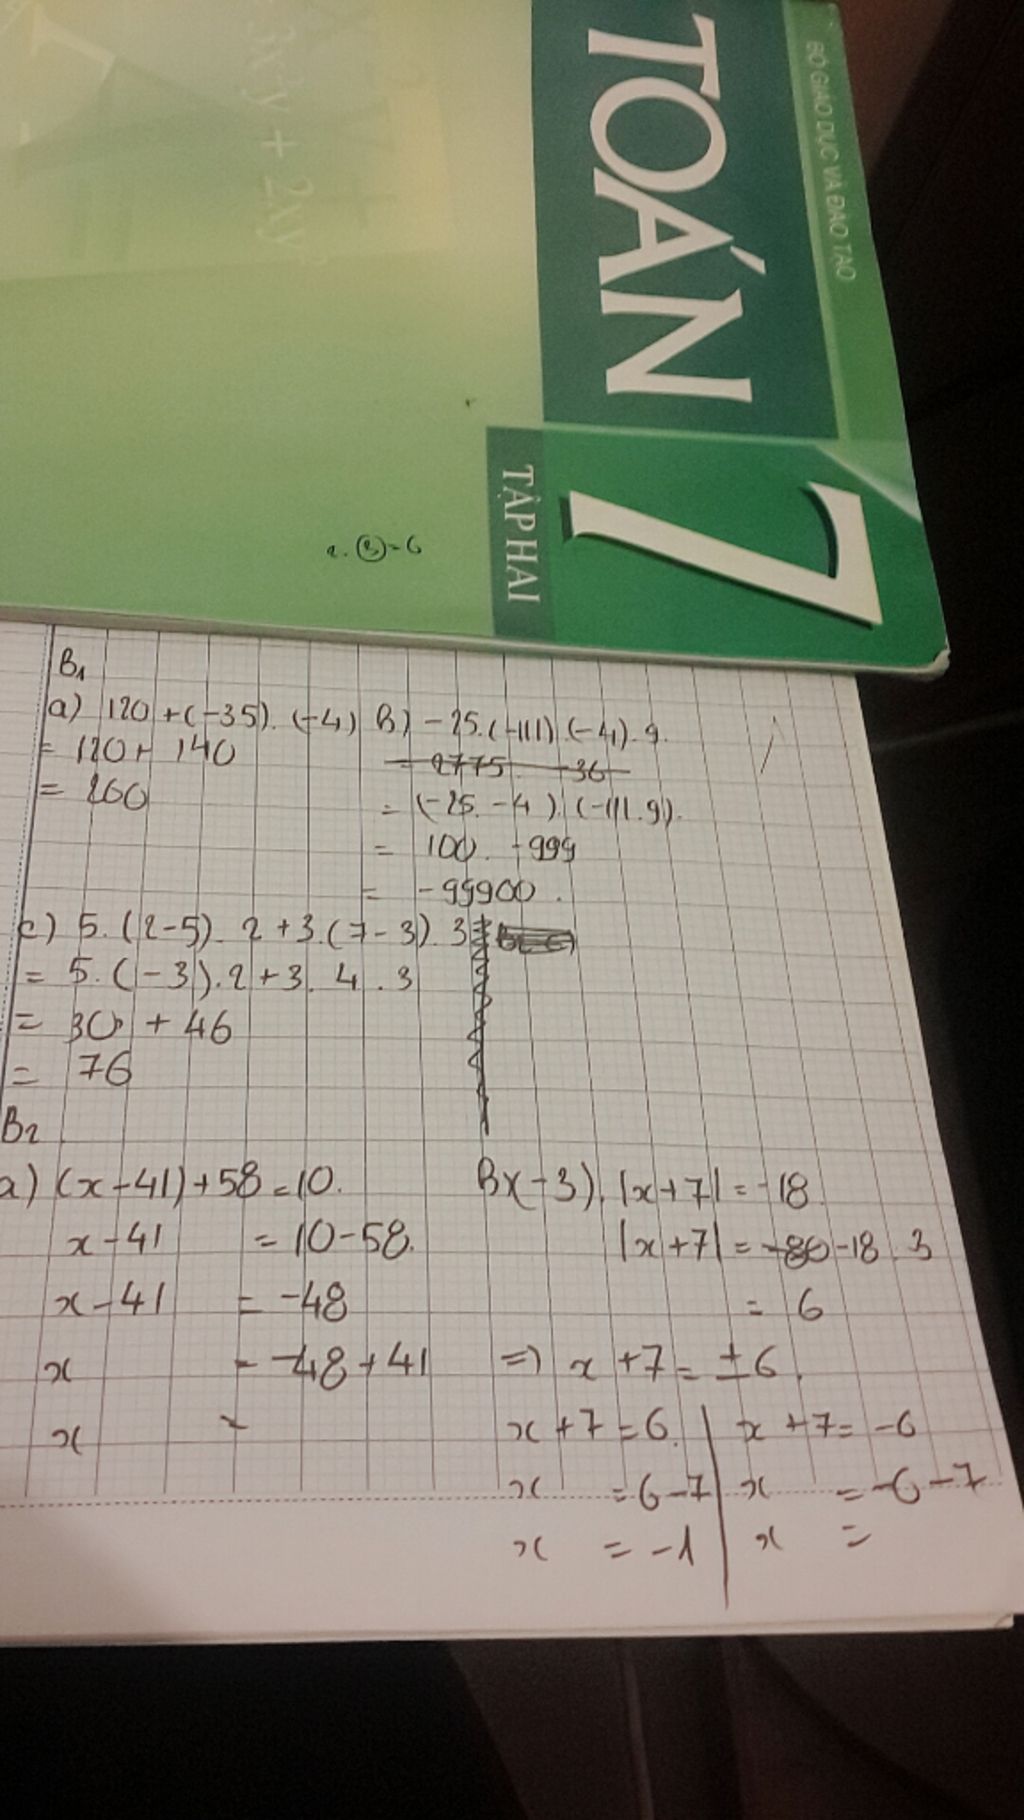 BỘ GIÁO DỤC VÀ ĐÀO TẠO
TOÁN
7
TẬP HAI
3x²y + 2xy
2.(3)=6
B1
a) 120 + (-35). (-4)
= 120 + 140
= 260
B) -25.(-111).(-4).9.
= 2775. -36
= (-25.-4).(-111.9).
= 100. -999
= -99900.
c) 5. (2-5). 2 + 3.(7-3). 3
= 5. (-3). 2 + 3. 4. 3
= 30 + 46
= 76
B2
a) (x-41)+58=10.
x-41 = 10-58.
x-41 = -48
x = -48+41
x =
B)(-3). |x+7| = -18
|x+7| = -18.3
= 6
=> x+7 = ±6.
x+7=6. | x+7= -6
x =6-7 | x = -6-7
x = -1 | x =